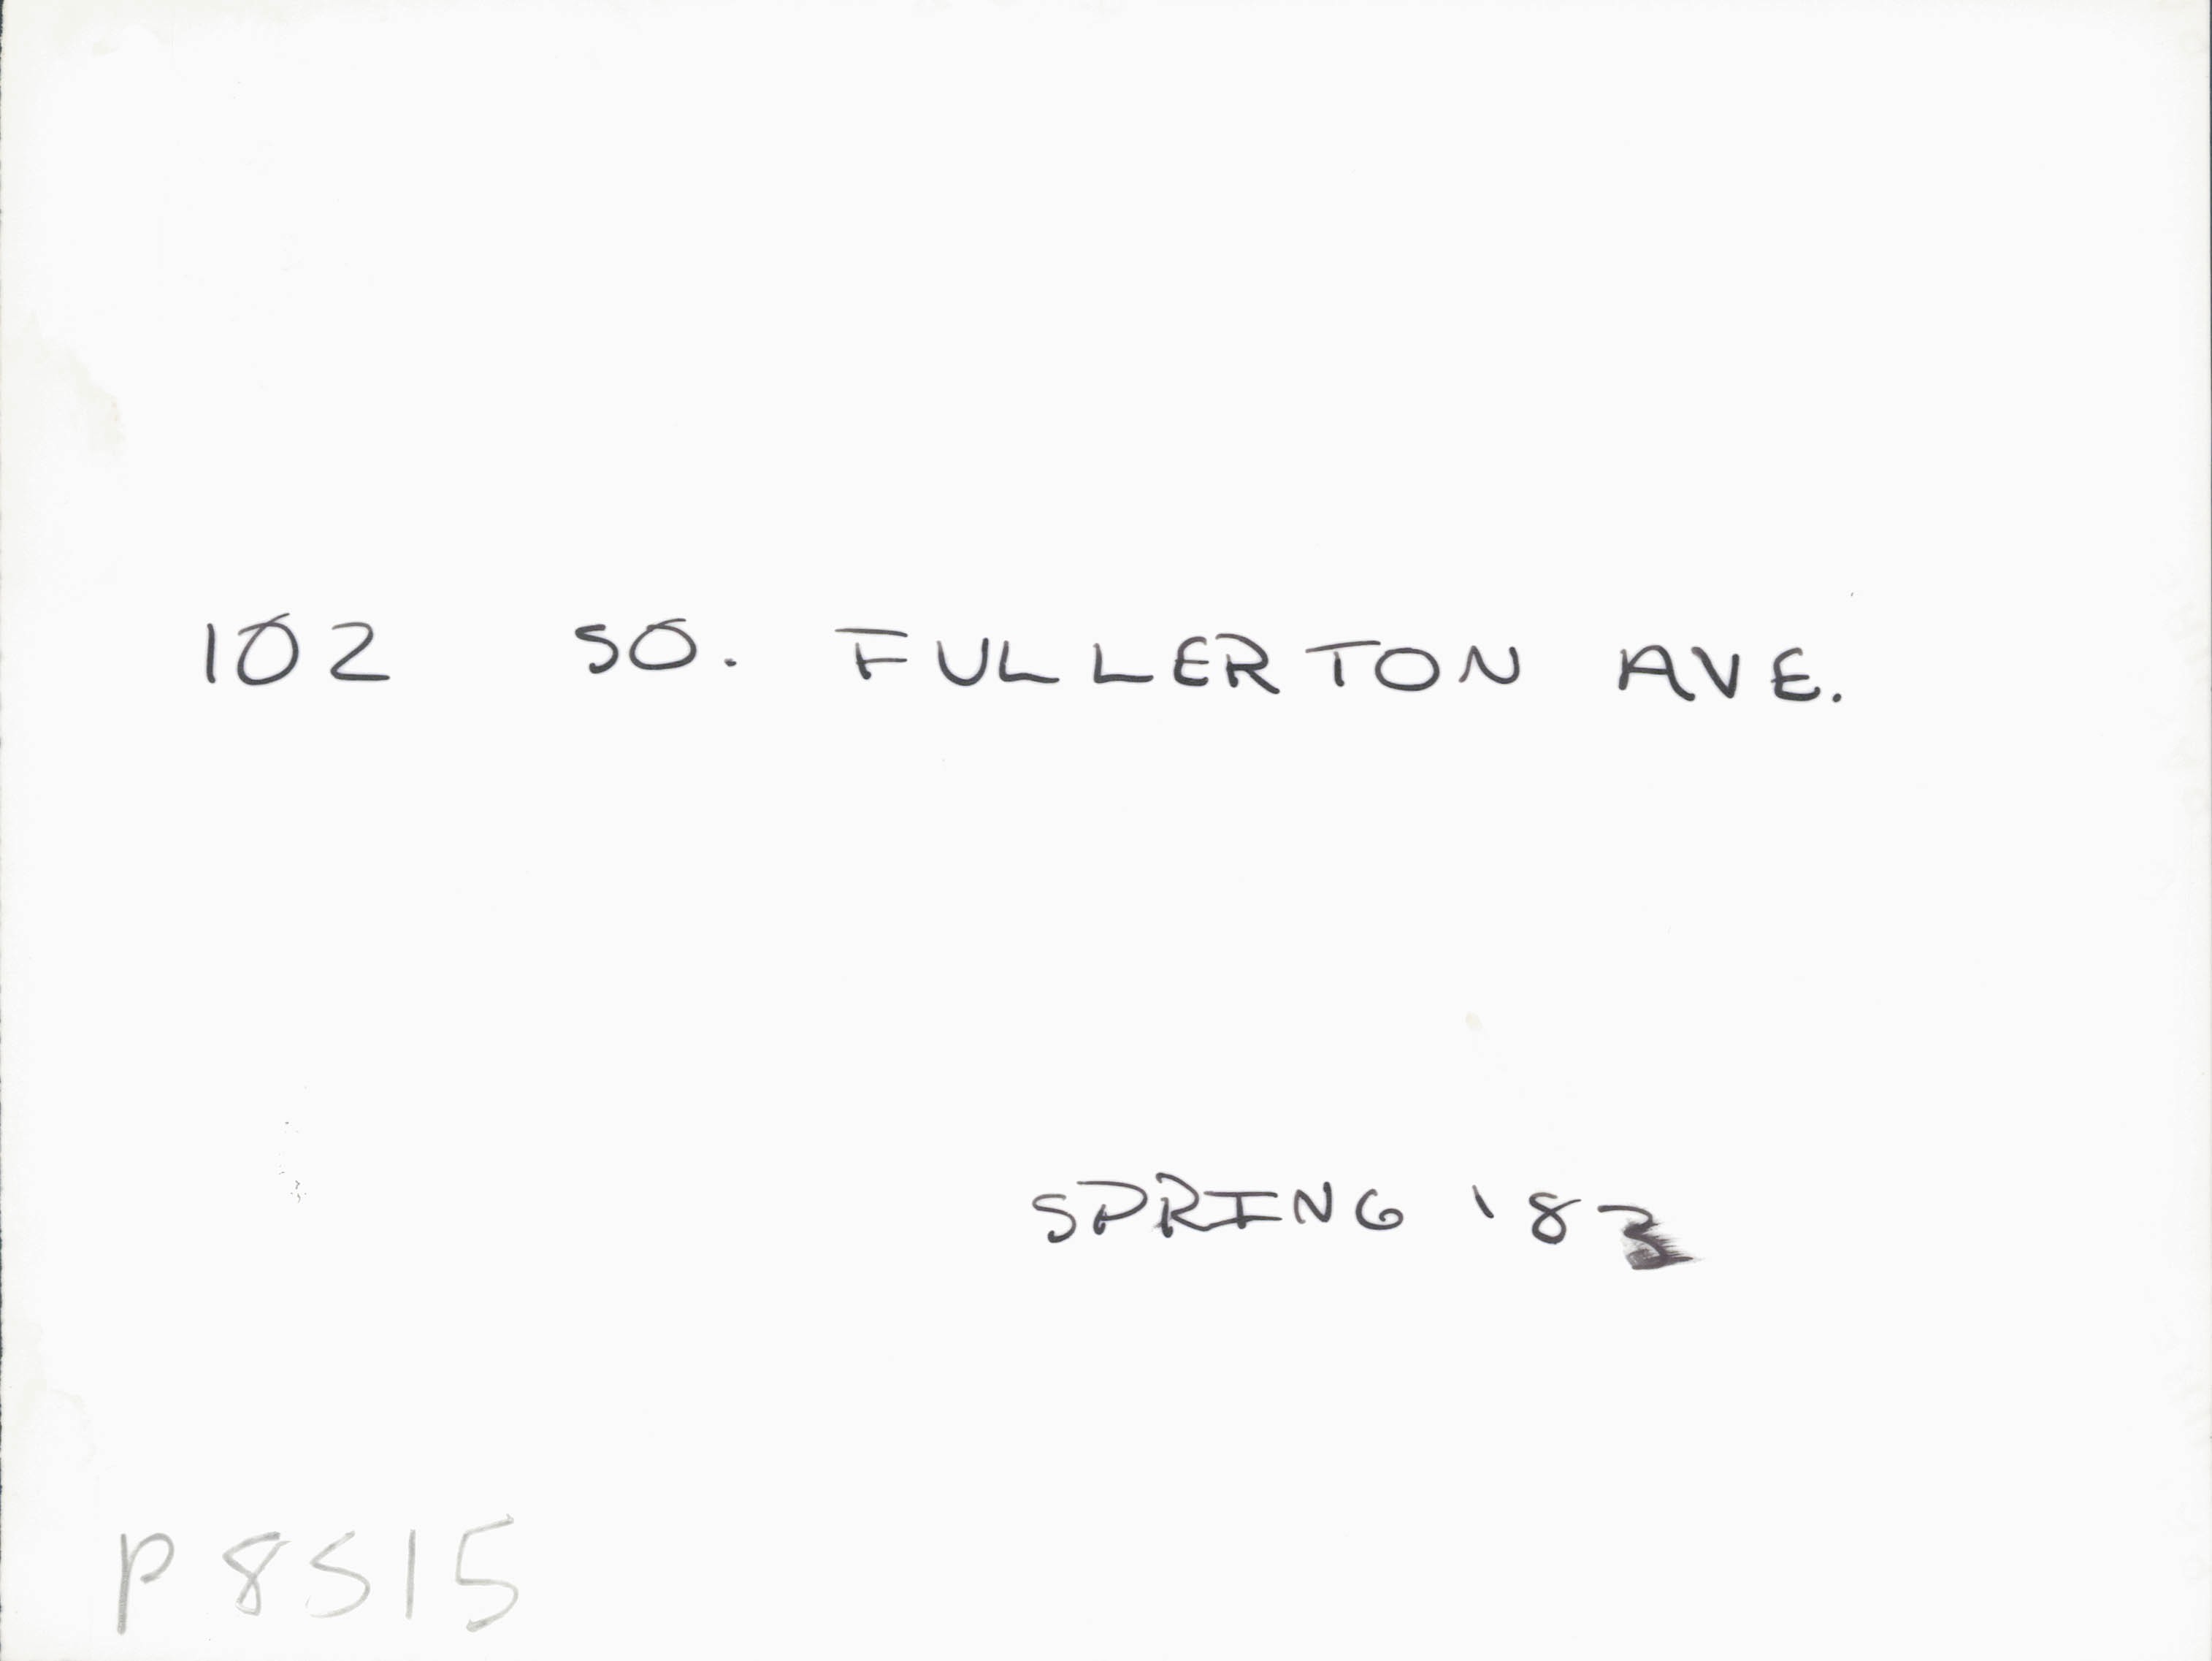 102 SO. FULLERTON AVE.
SPRING '83
P8515